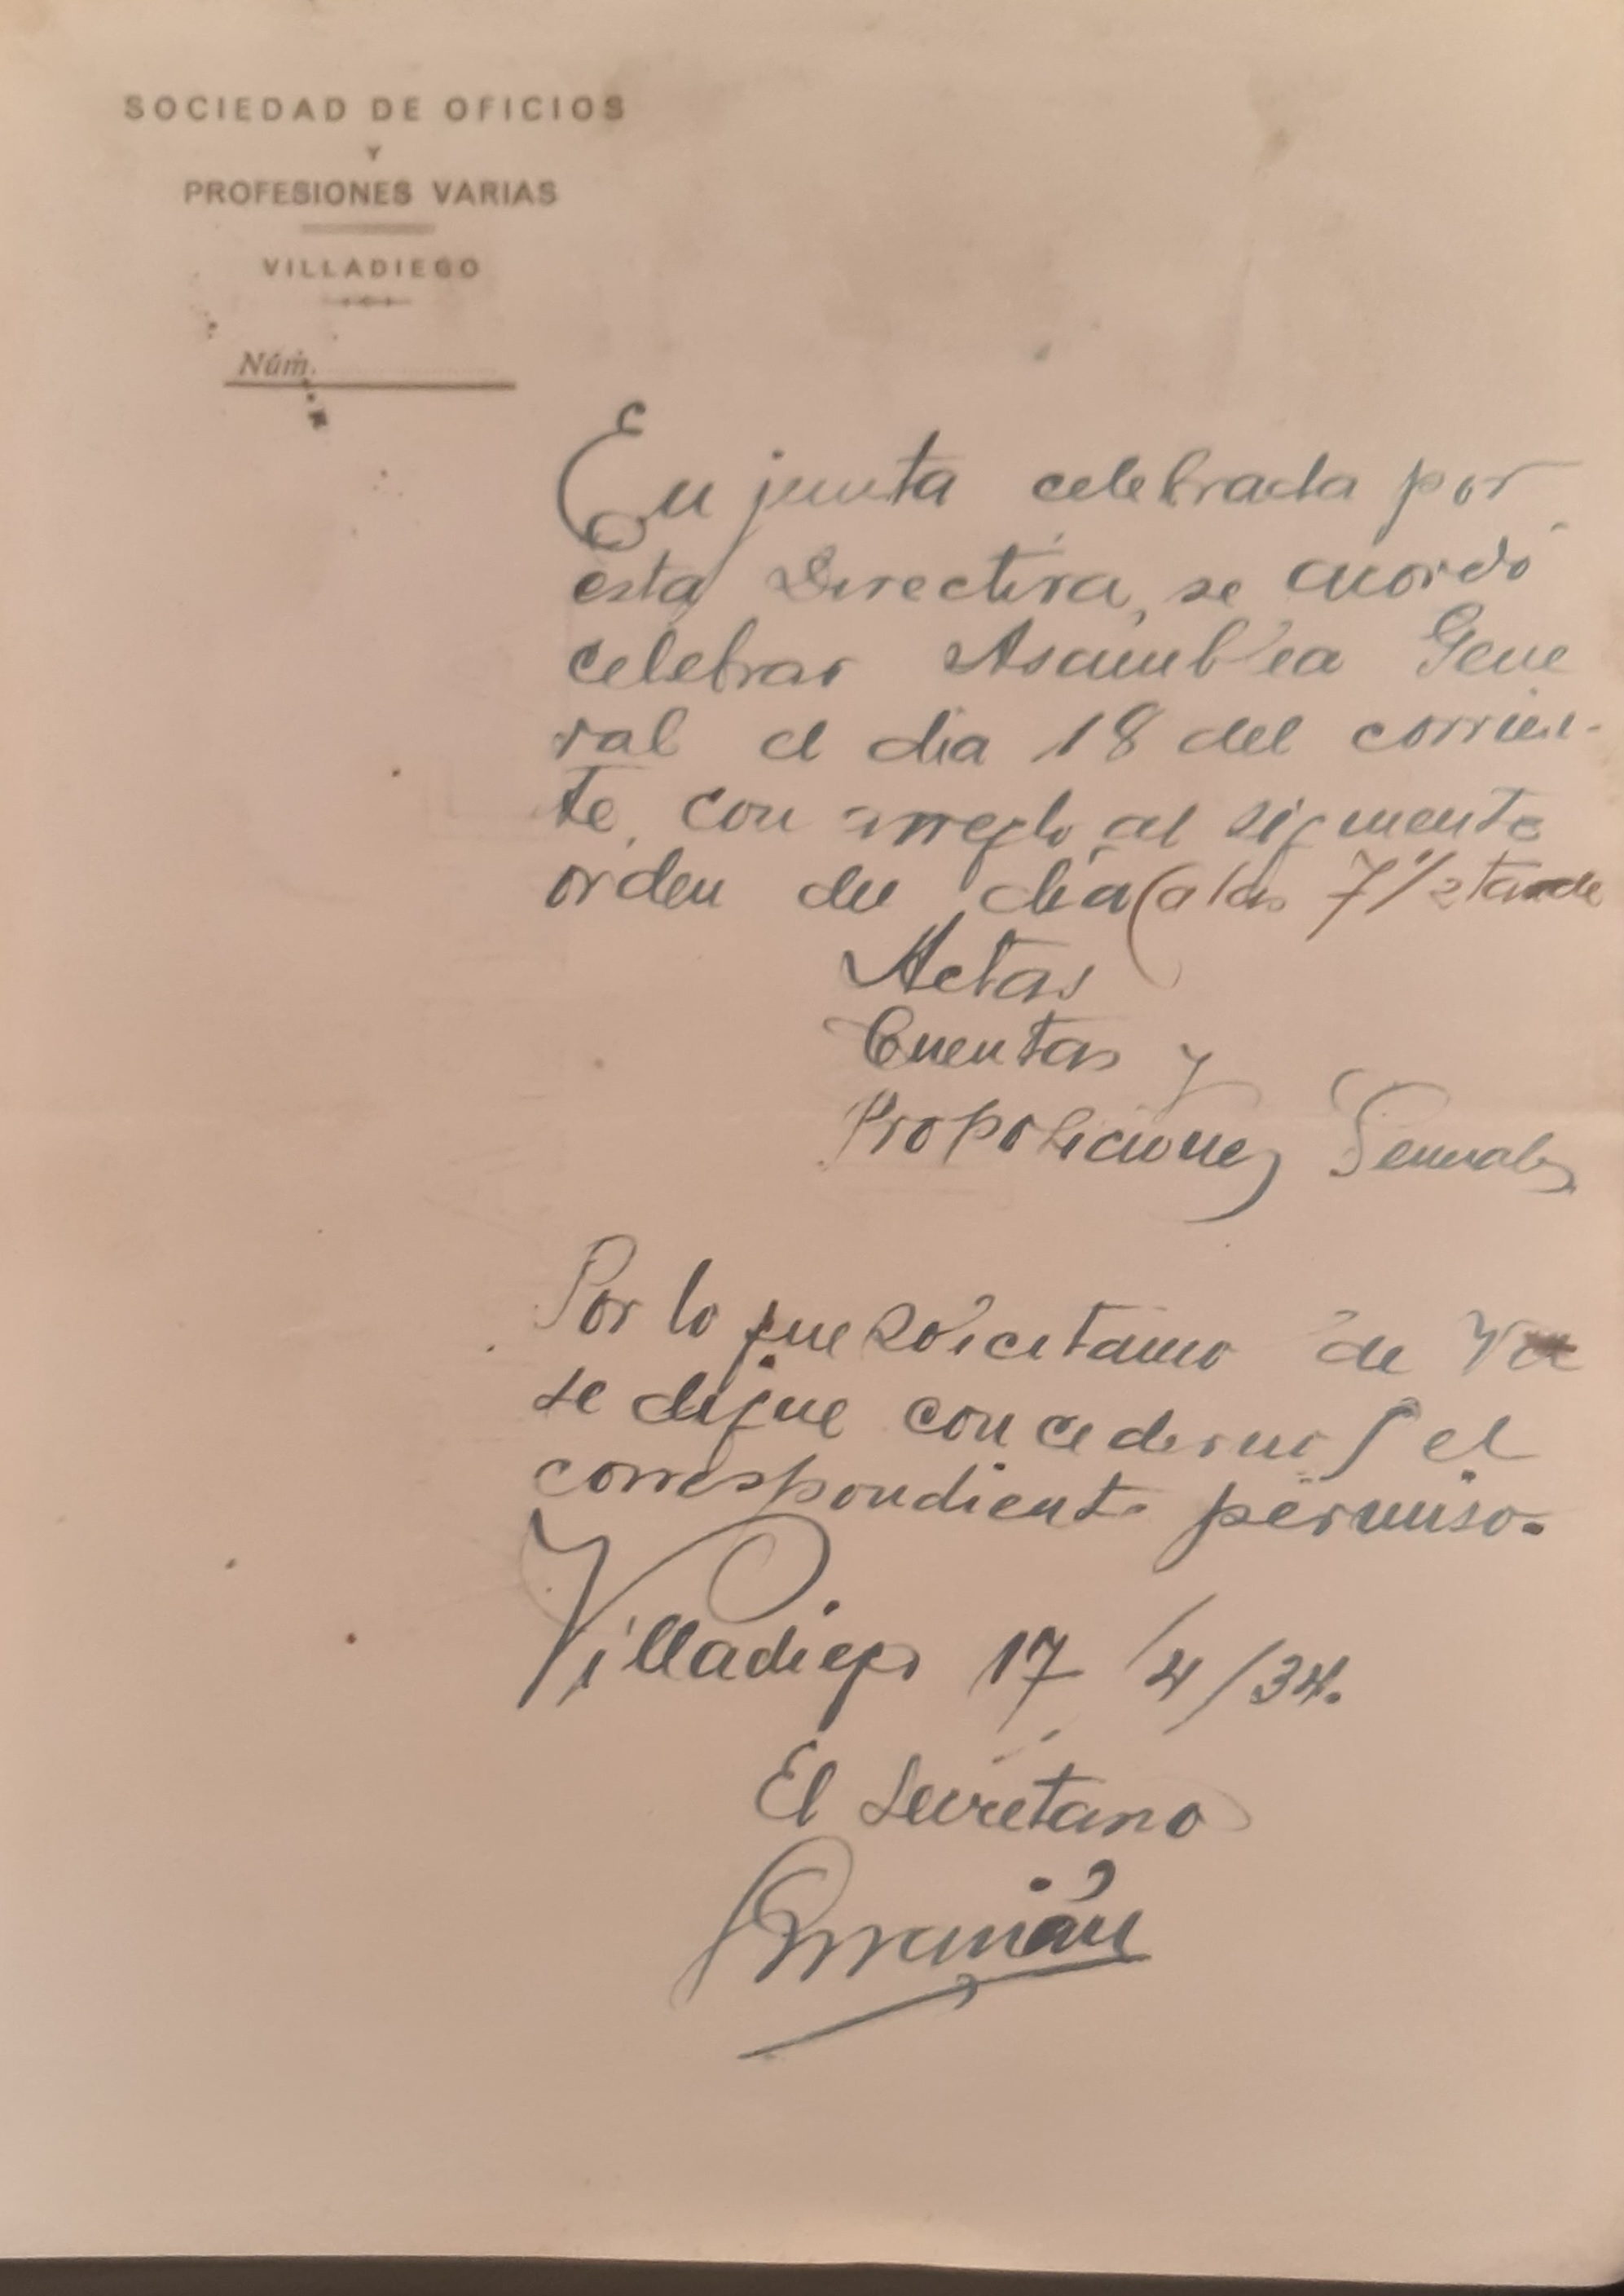 SOCIEDAD DE OFICIOS
Y
PROFESIONES VARIAS
VILLADIEGO
Núm.
En junta celebrada por
esta Directiva, se acordó
celebrar Asamblea Gene
ral el dia 18 del corrien-
te, con arreglo al siguiente
orden del dia (a las 7 1/2 tarde
Actas
Cuentas y
Proposiciones Generales
Por lo que solicitamos de
se digne concedernos el
correspondiente permiso.
Villadiego 17/4/34.
El Secretario